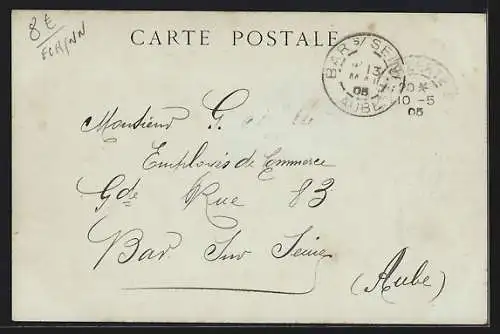 8€
CARTE POSTALE
BAR s/ SEINE
13
05
AUBE
20*
10 -5
05
Monsieur G.
Employés de Commerce
Gde Rue 83
Bar Sur Seine
(Aube)